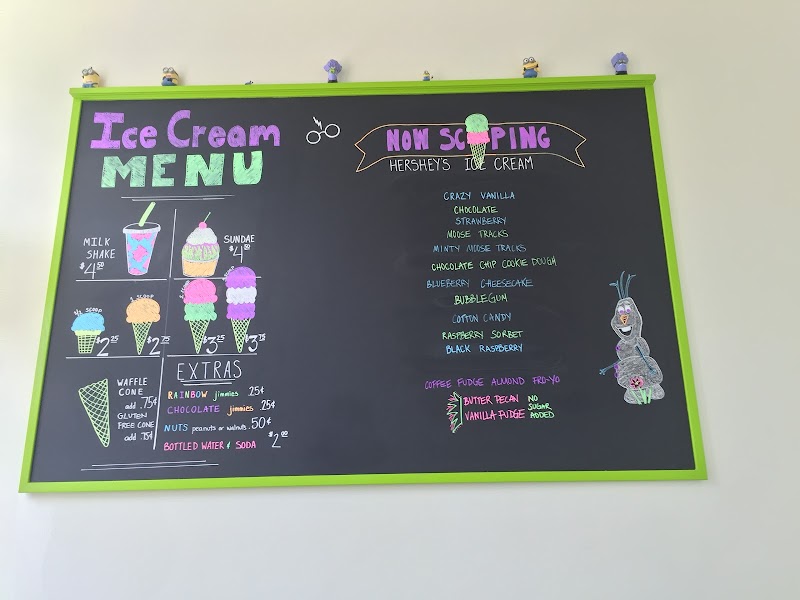 Ice Cream
MENU
MILK
SHAKE
$4.50
SUNDAE
$4.50
1/2 SCOOP
$2.25
1 SCOOP
$2.75
2 SCOOP
$3.25
3 SCOOP
$3.75
WAFFLE
CONE
add .75¢
GLUTEN
FREE CONE
add .75¢
EXTRAS
RAINBOW jimmies .25¢
CHOCOLATE jimmies .25¢
NUTS peanuts or walnuts .50¢
BOTTLED WATER & SODA $2.00
NOW SCOOPING
HERSHEY'S ICE CREAM
CRAZY VANILLA
CHOCOLATE
STRAWBERRY
MOOSE TRACKS
MINTY MOOSE TRACKS
CHOCOLATE CHIP COOKIE DOUGH
BLUEBERRY CHEESECAKE
BUBBLEGUM
COTTON CANDY
RASPBERRY SORBET
BLACK RASPBERRY
COFFEE FUDGE ALMOND FRO-YO
BUTTER PECAN
VANILLA FUDGE
NO
SUGAR
ADDED